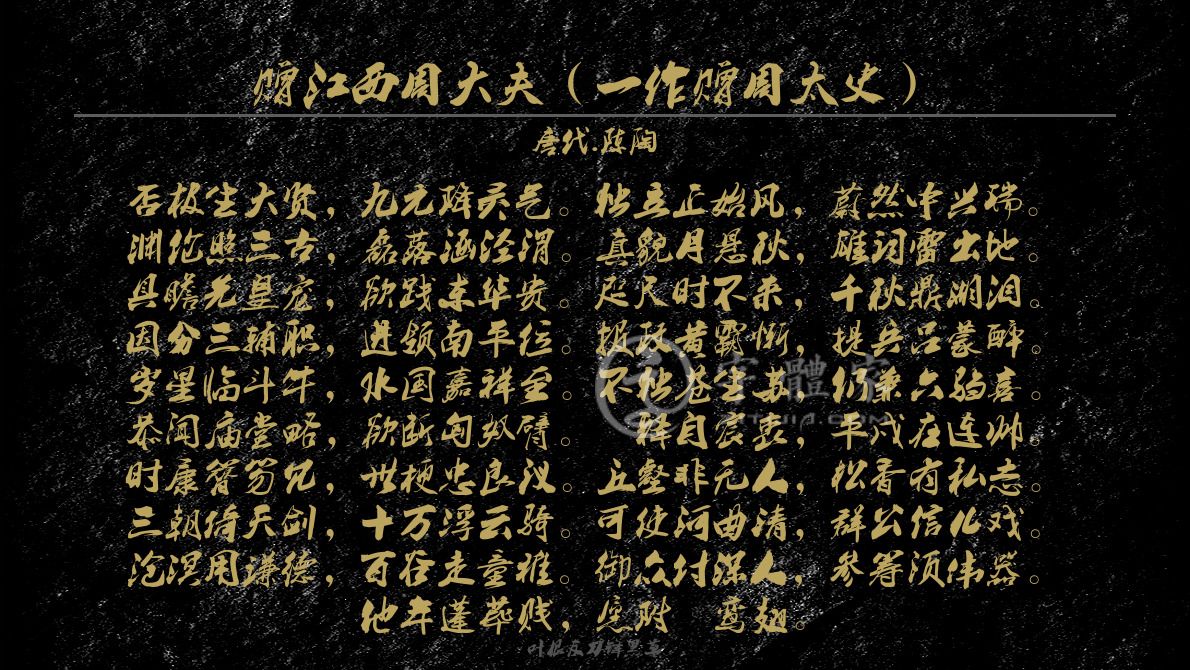 赠江西周大夫（一作赠周太史）
唐代.陈陶
否极生大贤，九元降灵气。独立正始风，蔚然中兴瑞。
渊伦照三古，磊落涵泾渭。真貌月悬秋，雄词雷出地。
具瞻先皇宠，欲践东华贵。咫尺时不来，千秋鼎湖泪。
因分三辅职，进领南平位。报政黄霸惭，提兵吕蒙醉。
岁星临斗牛，水国嘉祥至。不独苍生苏，仍兼六驺喜。
恭闻庙堂略，欲断匈奴臂。 择自宸衷，平戎在连帅。
时康簪笏冗，世梗忠良议。丘壑非无人，松香有私志。
三朝倚天剑，十万浮云骑。可使河曲清，群公信儿戏。
沧溟用谦德，百谷走童稚。御众付深人，参筹须伟器。
他年蓬荜贱，愿附 鸾翅。
字體家
叶根友刀锋黑草